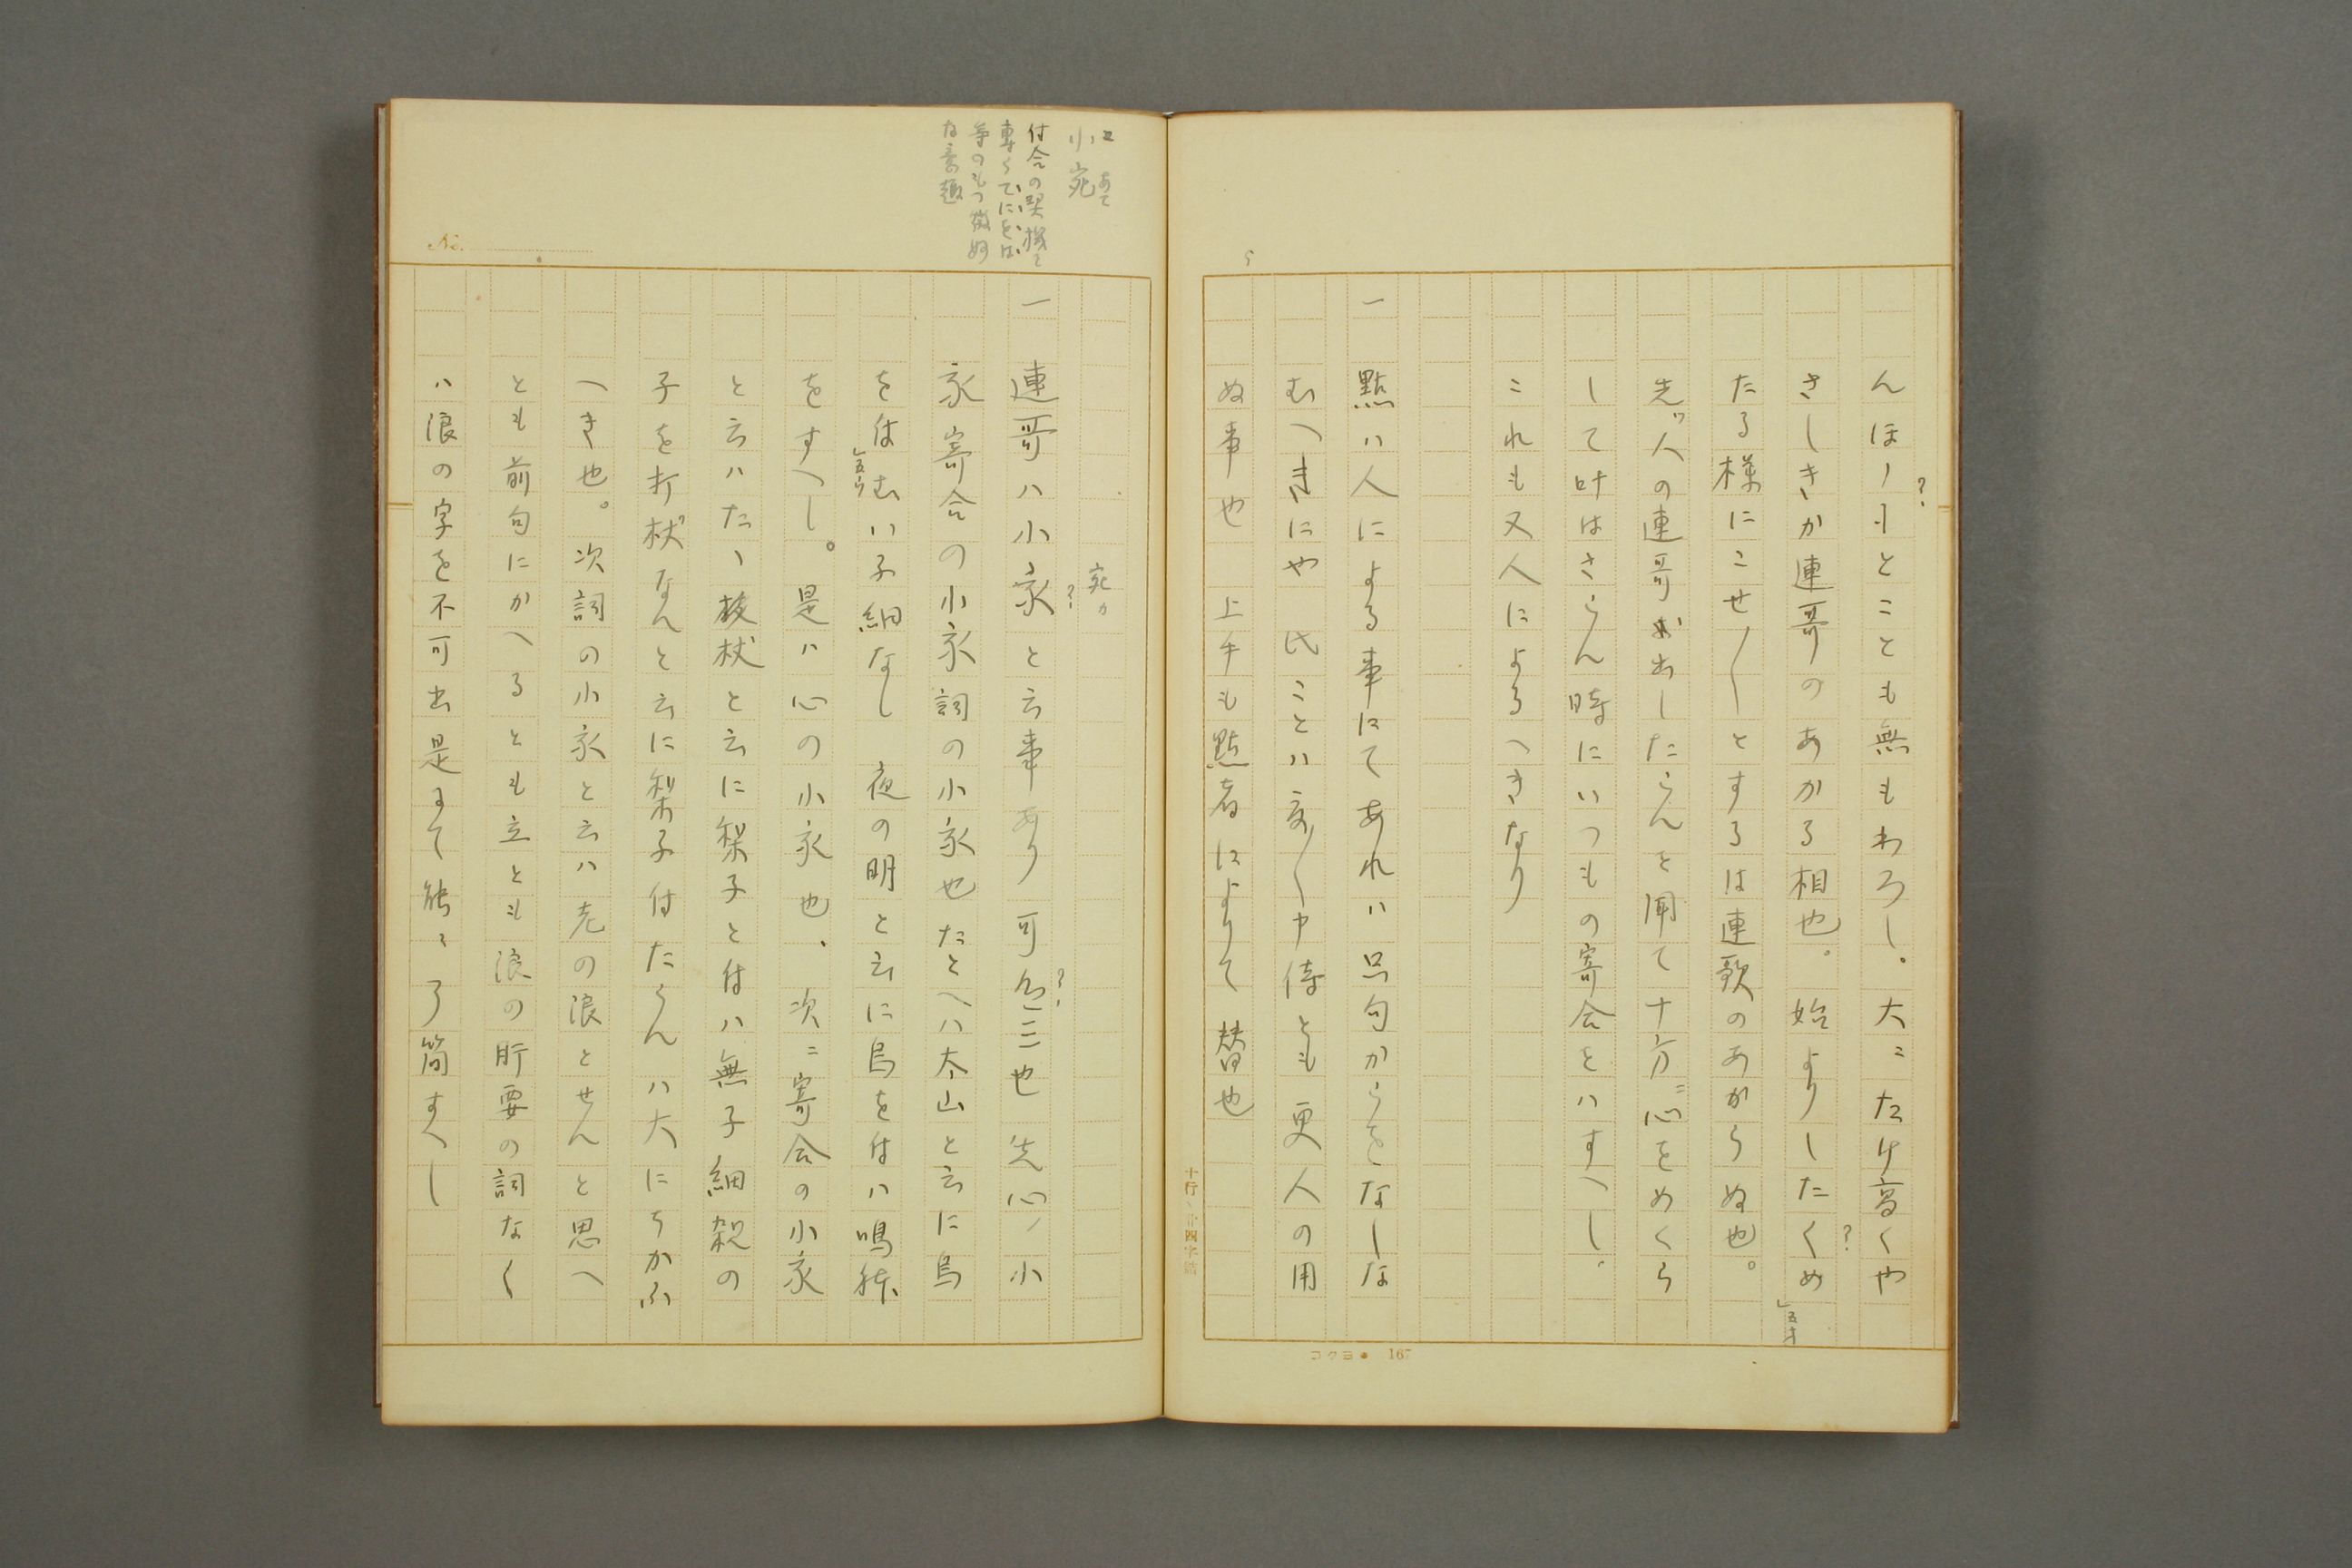 んほ〳〵とことも無もわろし. 大ニたけ高くや
?
さしきか連哥のあかる相也。 始よりしたくめ
?
」五オ
たる様にこせ〳〵とするは連歌のあからぬ也。
先ッ人の連哥お出したらんを聞て十方ニ心をめくら
して叶はさらん時にいつもの寄合をハすへし.
これも又人によるへきなり
一 點ハ人による事にてあれハ只句からをなしな
むへきにや 此ことハ家〳〵ヤ侍とも 更人の用
ぬ事也 上手も點者によりて 替也
5
コクヨ● 167
十行二十四字詰
コ あて
小宛
付合の契機を
専らていにをは
等のもつ微妙
な意趣
No.
宛カ
?
一 連哥ハ小家と云事あり 可為三也 先心ノ小
?
家寄合の小家詞の小家也たとへハ太山と云に鳥
を付
」五ウ
むハ子細なし 夜の明と云に鳥を付ハ鳴躰
をすへし。 是ハ心の小家也、 次ニ寄合の小家
と云ハたゝ杖と云に梨子と付ハ無子細 杖の
子を打杖なんと云に梨子付たらんハ大にちかふ
へき也。 次詞の小家と云ハ老の浪とせんと思へ
とも前句にかへるとも立とも浪の肝要の詞なく
ハ浪の字を不可出是まて能々了簡すへし